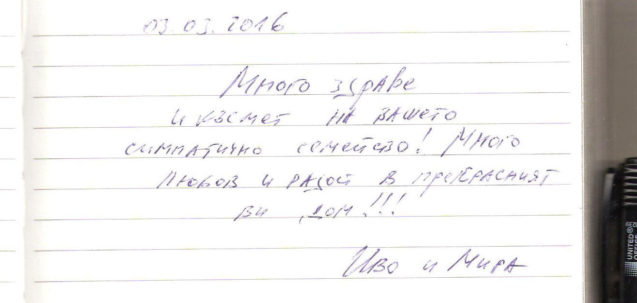 03.03.2016
Много здраве
и късмет на вашето
симпатично семейство! Много
любов и радост в прекрасният
ви дом!!!
Иво и Мира
UNITED
OFFICE